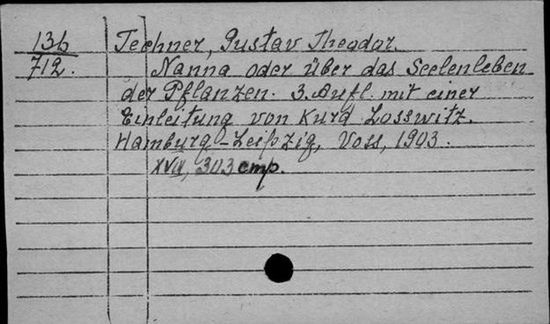 136
712.
Fechner, Gustav Theodor.
Nanna oder über das Seelenleben
der Pflanzen. 3. Aufl. mit einer
Einleitung von Kurd Lasswitz.
Hamburg-Leipzig, Voss, 1903.
XVII, 303 стр.